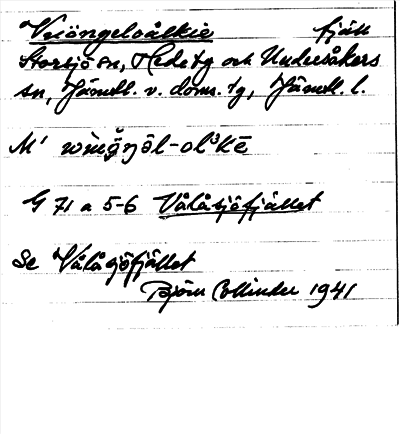 Vuöngeloålkie fjäll
Storsjö sn, Hede tg och Undersåkers
sn, Jämtl. v. doms. tg, Jämtl. l.
M'
G 71 a 5-6 Vålåsjöfjället
Se Vålåsjöfjället
Björn Collinder 1941